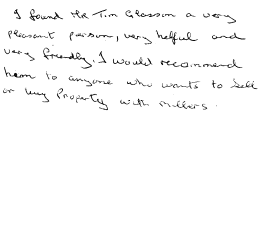 I found Mr Tim Glasson a very
pleasant person, very helful and
very friendly. I would recommend
hem to anyone who wants to Sell
or buy Property with Millers.